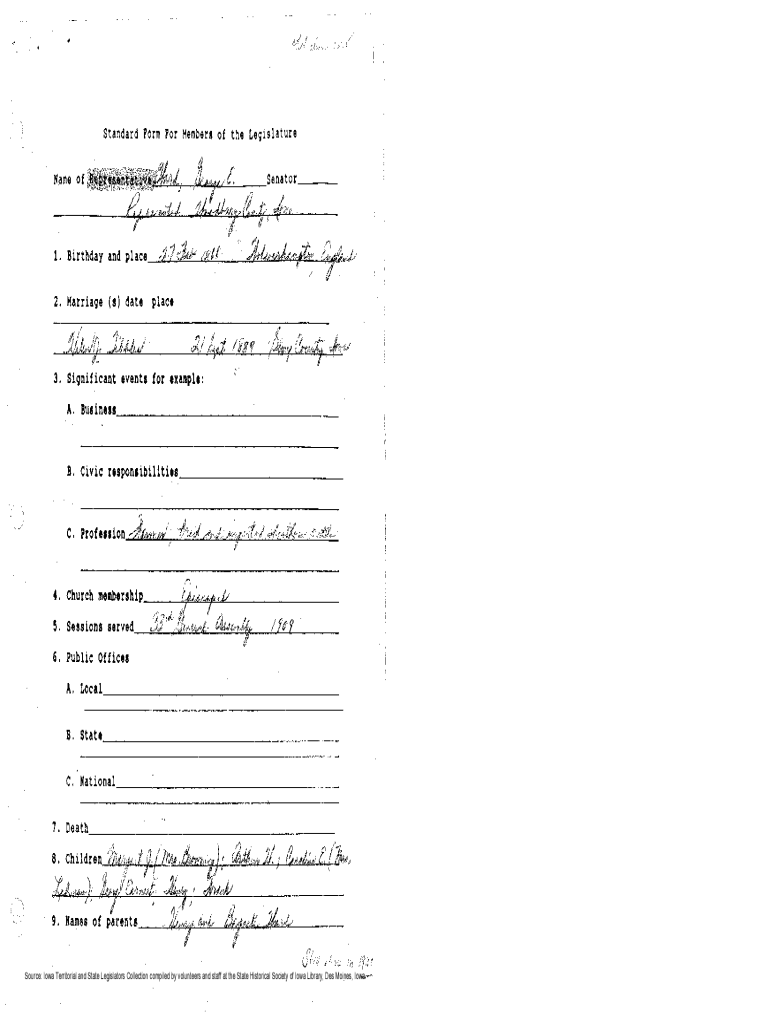 Standard Form For Members of the Legislature
Name of Representative Ward, George E. Senator
Represented Woodbury County, Iowa
1. Birthday and place 27 Feb Wolverhampton, England
2. Marriage (s) date place
21 Sept 1889 County, Iowa
3. Significant events for example:
A. Business
B. Civic responsibilities
C. Profession Farmer; bred and imported cattle
4. Church membership Episcopal
5. Sessions served 33rd General Assembly 1909
6. Public Offices
A. Local
B. State
C. National
7. Death
8. Children Margaret J. (Mrs. Browning); Arthur H.; Caroline E. (Mrs.
); George Ernest; Henry;
9. Names of parents Henry and Ward
Source: Iowa Territorial and State Legislators Collection compiled by volunteers and staff at the State Historical Society of Iowa Library, Des Moines, Iowa